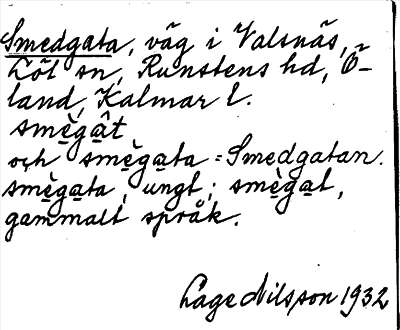 Smedgata, väg i Valsnäs,
Löt sn, Runstens hd, Ö-
land, Kalmar l.
smè̱gâ̱t
och smè̱ga̱ta = Smedgatan.
smè̱ga̱ta, ungt; smè̱ga̱t,
gammalt språk.
Lage Nilsson 1932